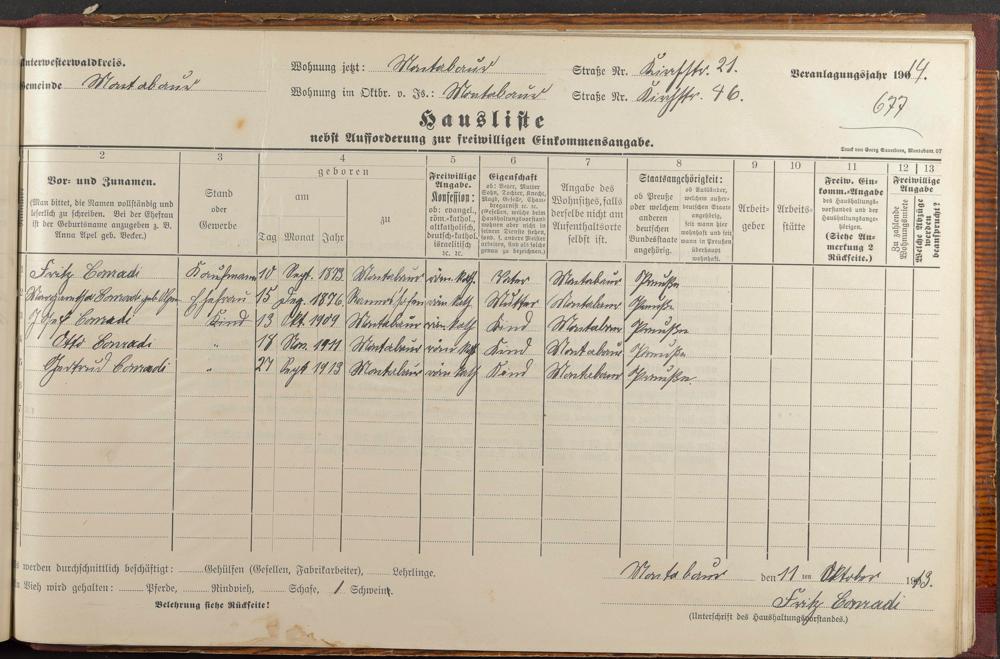 Unterwesterwaldkreis.
Gemeinde Montabaur
Wohnung jetzt: Montabaur Straße Nr. Kirchstr. 21.
Wohnung im Oktbr. v. Js.: Montabaur Straße Nr. Kirchstr. 46.
Veranlagungsjahr 1914.
677
Hausliste
nebst Aufforderung zur freiwilligen Einkommensangabe.
Druck von Georg Sauerborn, Montabaur. 07
2 3 4 5 6 7 8 9 10 11 12 13
Vor- und Zunamen.
(Man bittet, die Namen vollständig und
leserlich zu schreiben. Bei der Ehefrau
ist der Geburtsname anzugeben z. B.
Anna Apel geb. Becker.)
Stand
oder
Gewerbe
geboren
am
zu
Tag Monat Jahr
Freiwillige
Angabe.
Konfession:
ob: evangel.,
röm.-kathol.,
altkatholisch,
deutsch-kathol.
israelitisch
rc. rc.
Eigenschaft
ob: Vater, Mutter
Sohn, Tochter, Knecht,
Magd, Geselle, Cham-
bregarnist rc. rc.
(Gesellen, welche beim
Haushaltungsvorstand
wohnen aber nicht in
seinen Diensten stehen,
sond. f. andere Meister
arbeiten, sind als solche
genau zu bezeichnen.)
Angabe des
Wohnsitzes, falls
derselbe nicht am
Aufenthaltsorte
selbst ist.
Staatsangehörigkeit:
ob Preuße
oder welchem
anderen
deutschen
Bundesstaate
angehörig.
ob Ausländer,
welchem außer-
deutschen Staate
angehörig,
seit wann hier
wohnhaft und seit
wann in Preußen
überhaupt
wohnhaft.
Arbeit-
geber
Arbeits-
stätte
Freiw. Ein-
komm.-Angabe
des Haushaltungs-
vorstandes und der
Haushaltungsange-
hörigen.
(Siehe An-
merkung 2
Rückseite.)
Freiwillige
Angabe
Zu zahlende
Wohnungsmiete
Welche Abzüge
werden
beansprucht?
Fritz Conradi Kaufmann 10 Sept. 1873 Montabaur röm. kath. Vater Montabaur Preuße
Margaretha Conradi geb. Ehefrau 15 Dez. 1876 röm. kath. Mutter Montabaur Preuße
Josef Conradi Kind 13 Okt. 1909 Montabaur röm. kath. Kind Montabaur Preuße
Otto Conradi " 18 Nov. 1911 Montabaur röm. kath. Kind Montabaur Preuße
Gertrud Conradi " 27 Sept 1913 Montabaur röm. kath. Kind Montabaur Preuße.
werden durchschnittlich beschäftigt: Gehülfen (Gesellen, Fabrikarbeiter), Lehrlinge.
Vieh wird gehalten: Pferde, Rindvieh, Schafe, 1 Schwein.
Belehrung siehe Rückseite!
Montabaur den 11ten Oktober 1913.
Fritz Conradi
(Unterschrift des Haushaltungsvorstandes.)